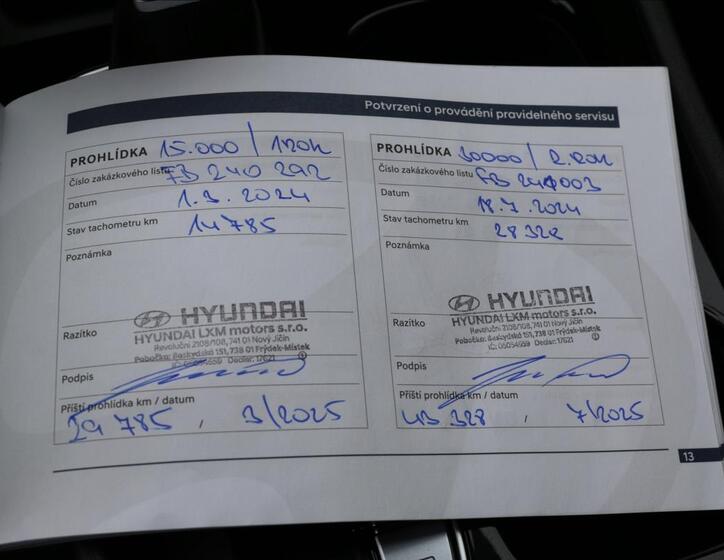 Potvrzení o provádění pravidelného servisu
PROHLÍDKA 15.000 / 1.ROK
Číslo zakázkového listu FB 240 292
Datum 1.3.2024
Stav tachometru km 14785
Poznámka
HYUNDAI
HYUNDAI LXM motors s.r.o.
Revoluční 2108/108, 741 01 Nový Jičín
Pobočka: Beskydská 151, 738 01 Frýdek-Místek
Razítko
Podpis
Příští prohlídka km / datum
29 785, 3/2025
PROHLÍDKA 30000 / 2.ROK
Číslo zakázkového listu
Datum 18.7.2024
Stav tachometru km 28328
Poznámka
HYUNDAI
HYUNDAI LXM motors s.r.o.
Revoluční 2108/108, 741 01 Nový Jičín
Pobočka: Beskydská 151, 738 01 Frýdek-Místek
Razítko
Podpis
Příští prohlídka km / datum
43 328, 7/2025
13